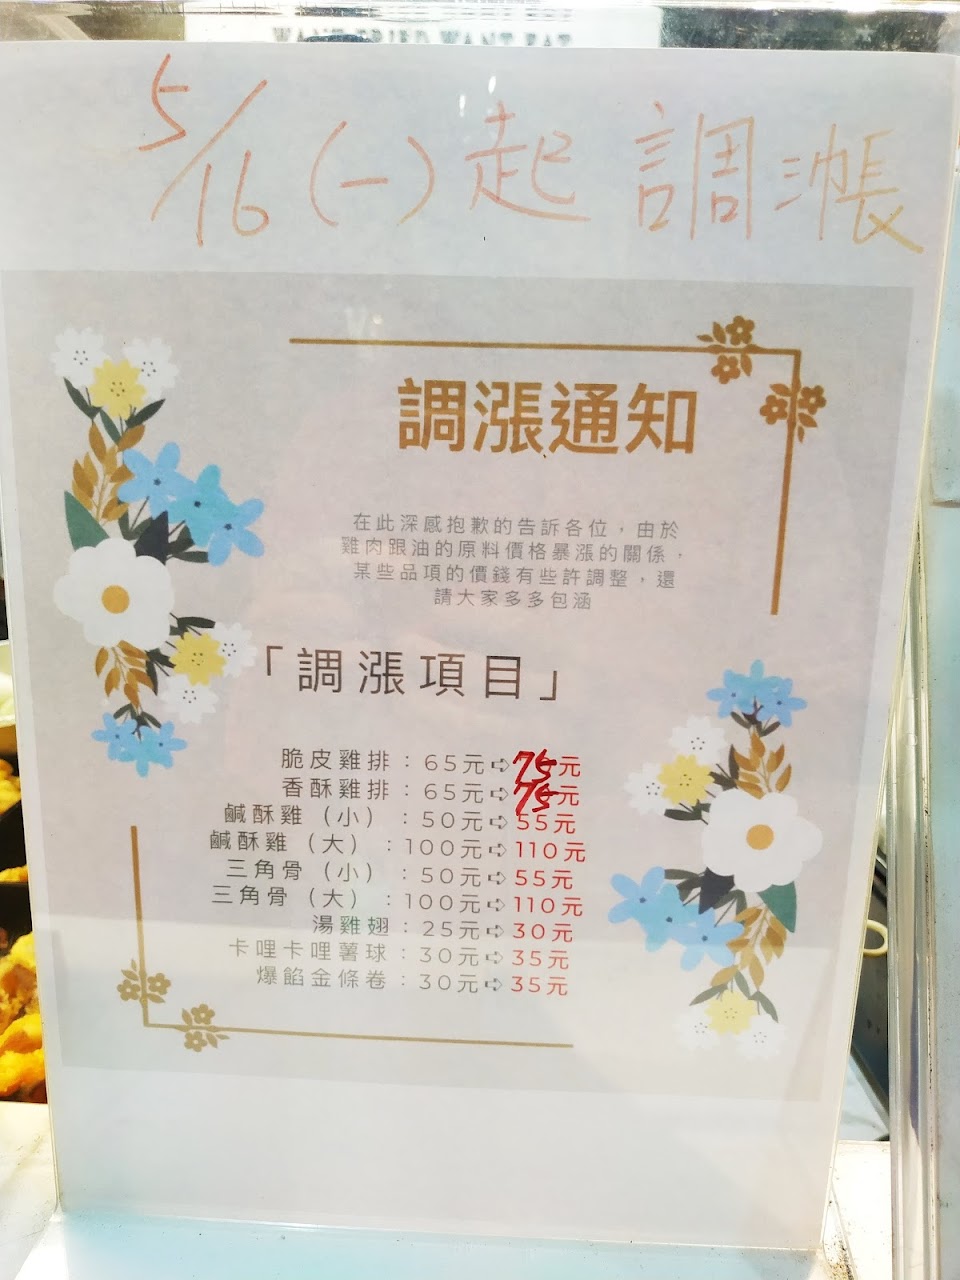 WANT FRIED WANT EAT
5/16(一)起 調漲
調漲通知
在此深感抱歉的告訴各位，由於
雞肉跟油的原料價格暴漲的關係，
某些品項的價錢有些許調整，還
請大家多多包涵
「調漲項目」
脆皮雞排：65元➪75元
香酥雞排：65元➪75元
鹹酥雞（小）：50元➪55元
鹹酥雞（大）：100元➪110元
三角骨（小）：50元➪55元
三角骨（大）：100元➪110元
湯雞翅：25元➪30元
卡哩卡哩薯球：30元➪35元
爆餡金條卷：30元➪35元